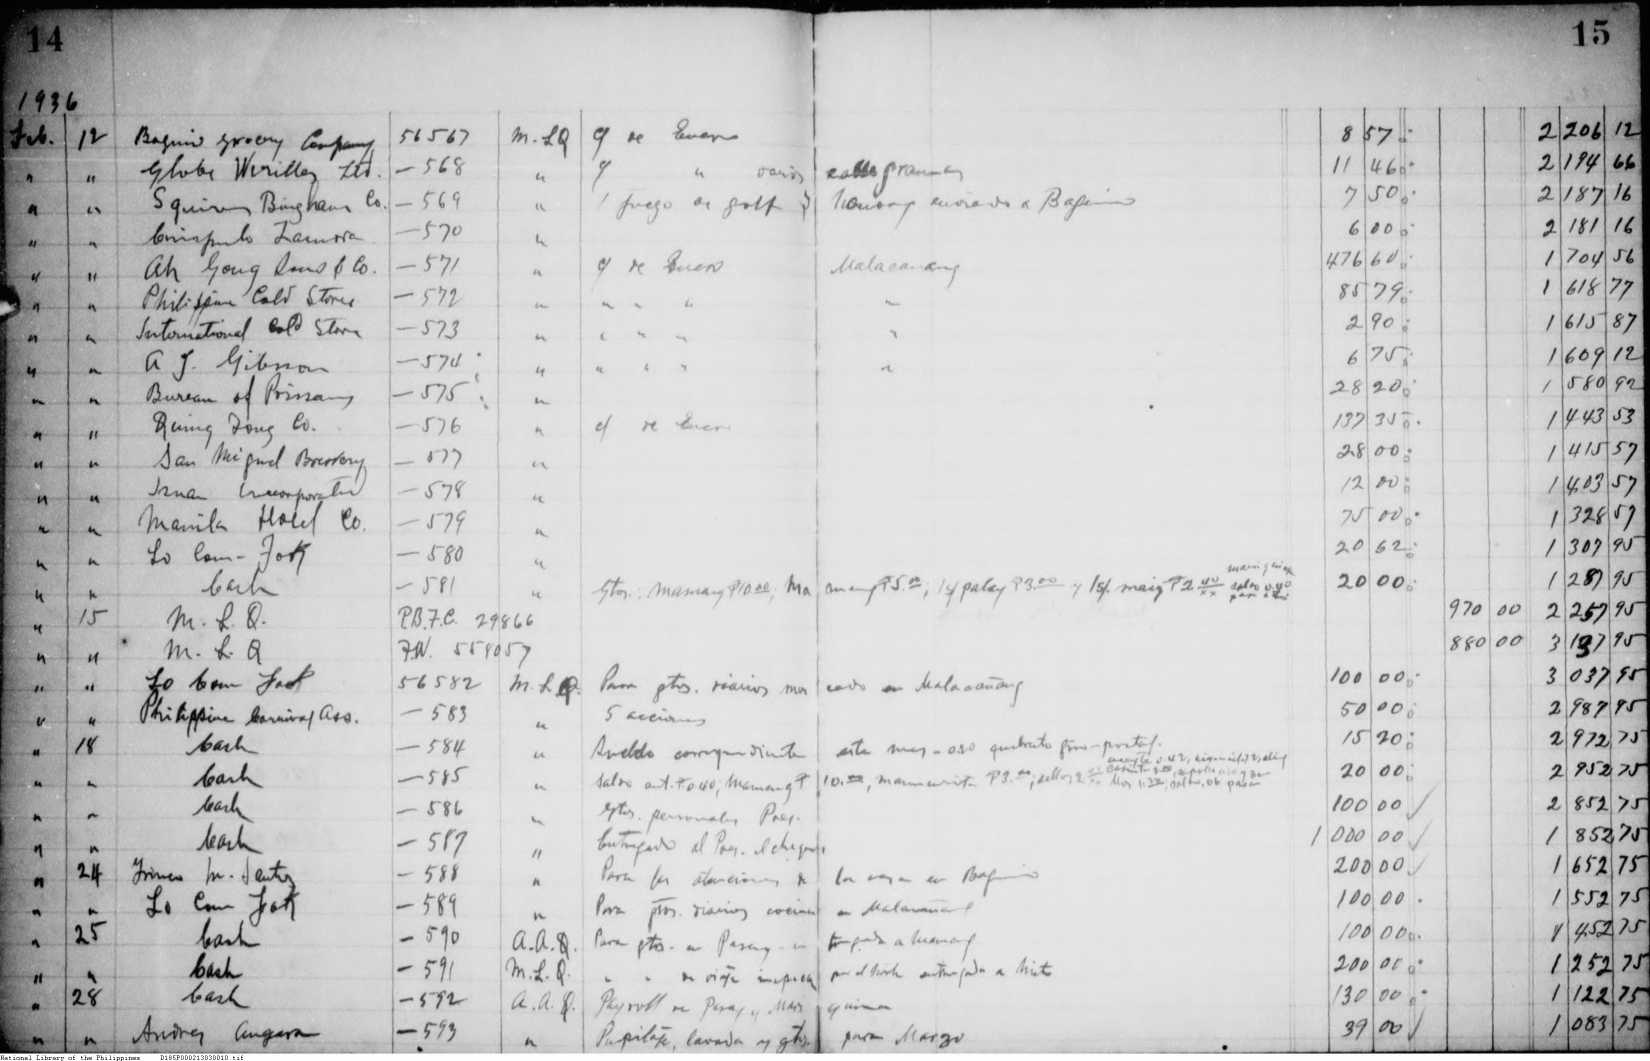 14 15
1936
Feb. 12 Baguio grocery Company 56567 M. L Q c/ de Enero 8 57 2 206 12
" " Globe Wireless Ltd. — 568 " c/ " varios 11 46 2 194 66
" " Squires Bingham Co. — 569 " 1 juego de golf enviado a Baguio 7 50 2 187 16
" " Crispulo Zamora — 570 " 6 00 2 181 16
" " Ah Gong Sons & Co. — 571 " c/ de Enero Malacanang 476 60 1 704 56
" " Philippine Cold Stores — 572 " " " " " 85 79 1 618 77
" " International Cold Store — 573 " " " " 2 90 1 615 87
" " A. J. Gibson — 574 " " " " " 6 75 1 609 12
" " Bureau of Prisons — 575 " 28 20 1 580 92
" " Quing Fong Co. — 576 " c/ de Enero 137 35 1 443 53
" " San Miguel Brewery — 577 " 28 00 1 415 57
" " Incorporated — 578 " 12 00 1 403 57
" " Manila Hotel Co. — 579 " 75 00 1 328 57
" " Lo Com-Fok — 580 " 20 62 1 307 95
" " Cash — 581 " Gtos. Mamang ₱10.00; ₱5.00; palay ₱3.00 y maiz ₱2 40 20 00 1 287 95
" 15 M. L. Q. P.B.T.C. 29866 970 00 2 257 95
" " M. L. Q 559057 880 00 3 137 95
" " Lo Com Fok 56582 M. L. Q. Para gtos. diarios mercado en Malacañang 100 00 3 037 95
" " Philippine Carnival Ass. — 583 " 5 acciones 50 00 2 987 95
" 18 Cash — 584 " Sueldo correspondiente este mes - 0.20 giro-postal. 15 20 2 972 75
" " Cash — 585 " Saldo ant. ₱0.40; Mamang ₱ 10.00, ₱3.00; sellos 2 20 00 2 952 75
" " Cash — 586 " Gtos. personales Pres. 100 00 2 852 75
" " Cash — 587 " Entregado al Pres. el cheque 1 000 00 1 852 75
" 24 M. Santos — 588 " Para las atenciones de la casa en Baguio 200 00 1 652 75
" " Lo Com Fok — 589 " Para gtos. diarios cocina en Malacañang 100 00 1 552 75
" 25 Cash — 590 A. A. Q. Para gtos. en Pasay - entregado a Mamang 100 00 1 452 75
" " Cash — 591 M. L. Q. " " de viaje por el Norte entregado a Nieto 200 00 1 252 75
" 28 Cash — 592 A. A. Q. Payroll de Pasay y Mariquina 130 00 1 122 75
" " Andres Angara — 593 " Pupilaje, lavado y gtos. para Marzo 39 00 1 083 75
National Library of the Philippines D185P000213030010.tif